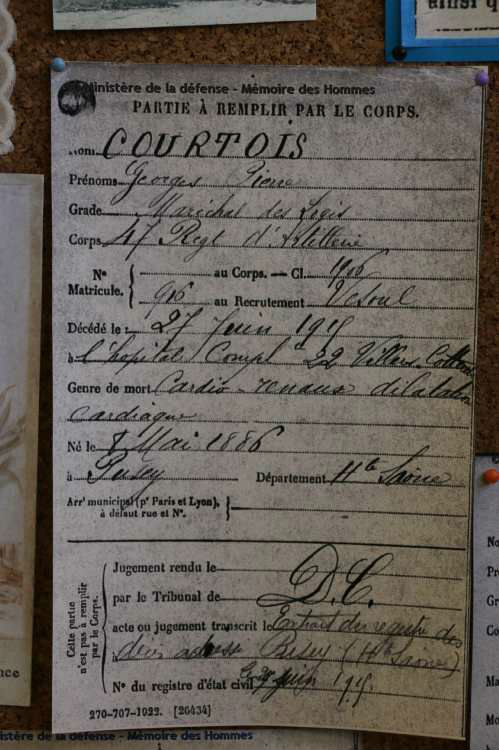 ainsi qu
Ministère de la défense - Mémoire des Hommes
PARTIE À REMPLIR PAR LE CORPS.
Nom COURTOIS
Prénoms Georges Pierre
Grade Maréchal des Logis
Corps 47 Regt d'Artillerie
N° Matricule. { au Corps. — Cl. 1906
916 au Recrutement Vesoul
Décédé le 27 Juin 1915
à l'hopital Compl 22 Villers Cotterets
Genre de mort Cardio-renaux dilatation
cardiaque
Né le 8 Mai 1886
à Pusey Département Hte Saône
Arrt municipal (pr Paris et Lyon), à défaut rue et N°. {
Cette partie n'est pas à remplir par le Corps.
Jugement rendu le
par le Tribunal de D.C.
acte ou jugement transcrit le Extrait du registre des
décès Pusey (Hte Saône)
N° du registre d'état civil Le 29 Juin 1915
270-707-1022. [26434]
nce
No
Pré
Gr
Co
Ma
Mo
istère de la défense - Mémoire des Hommes